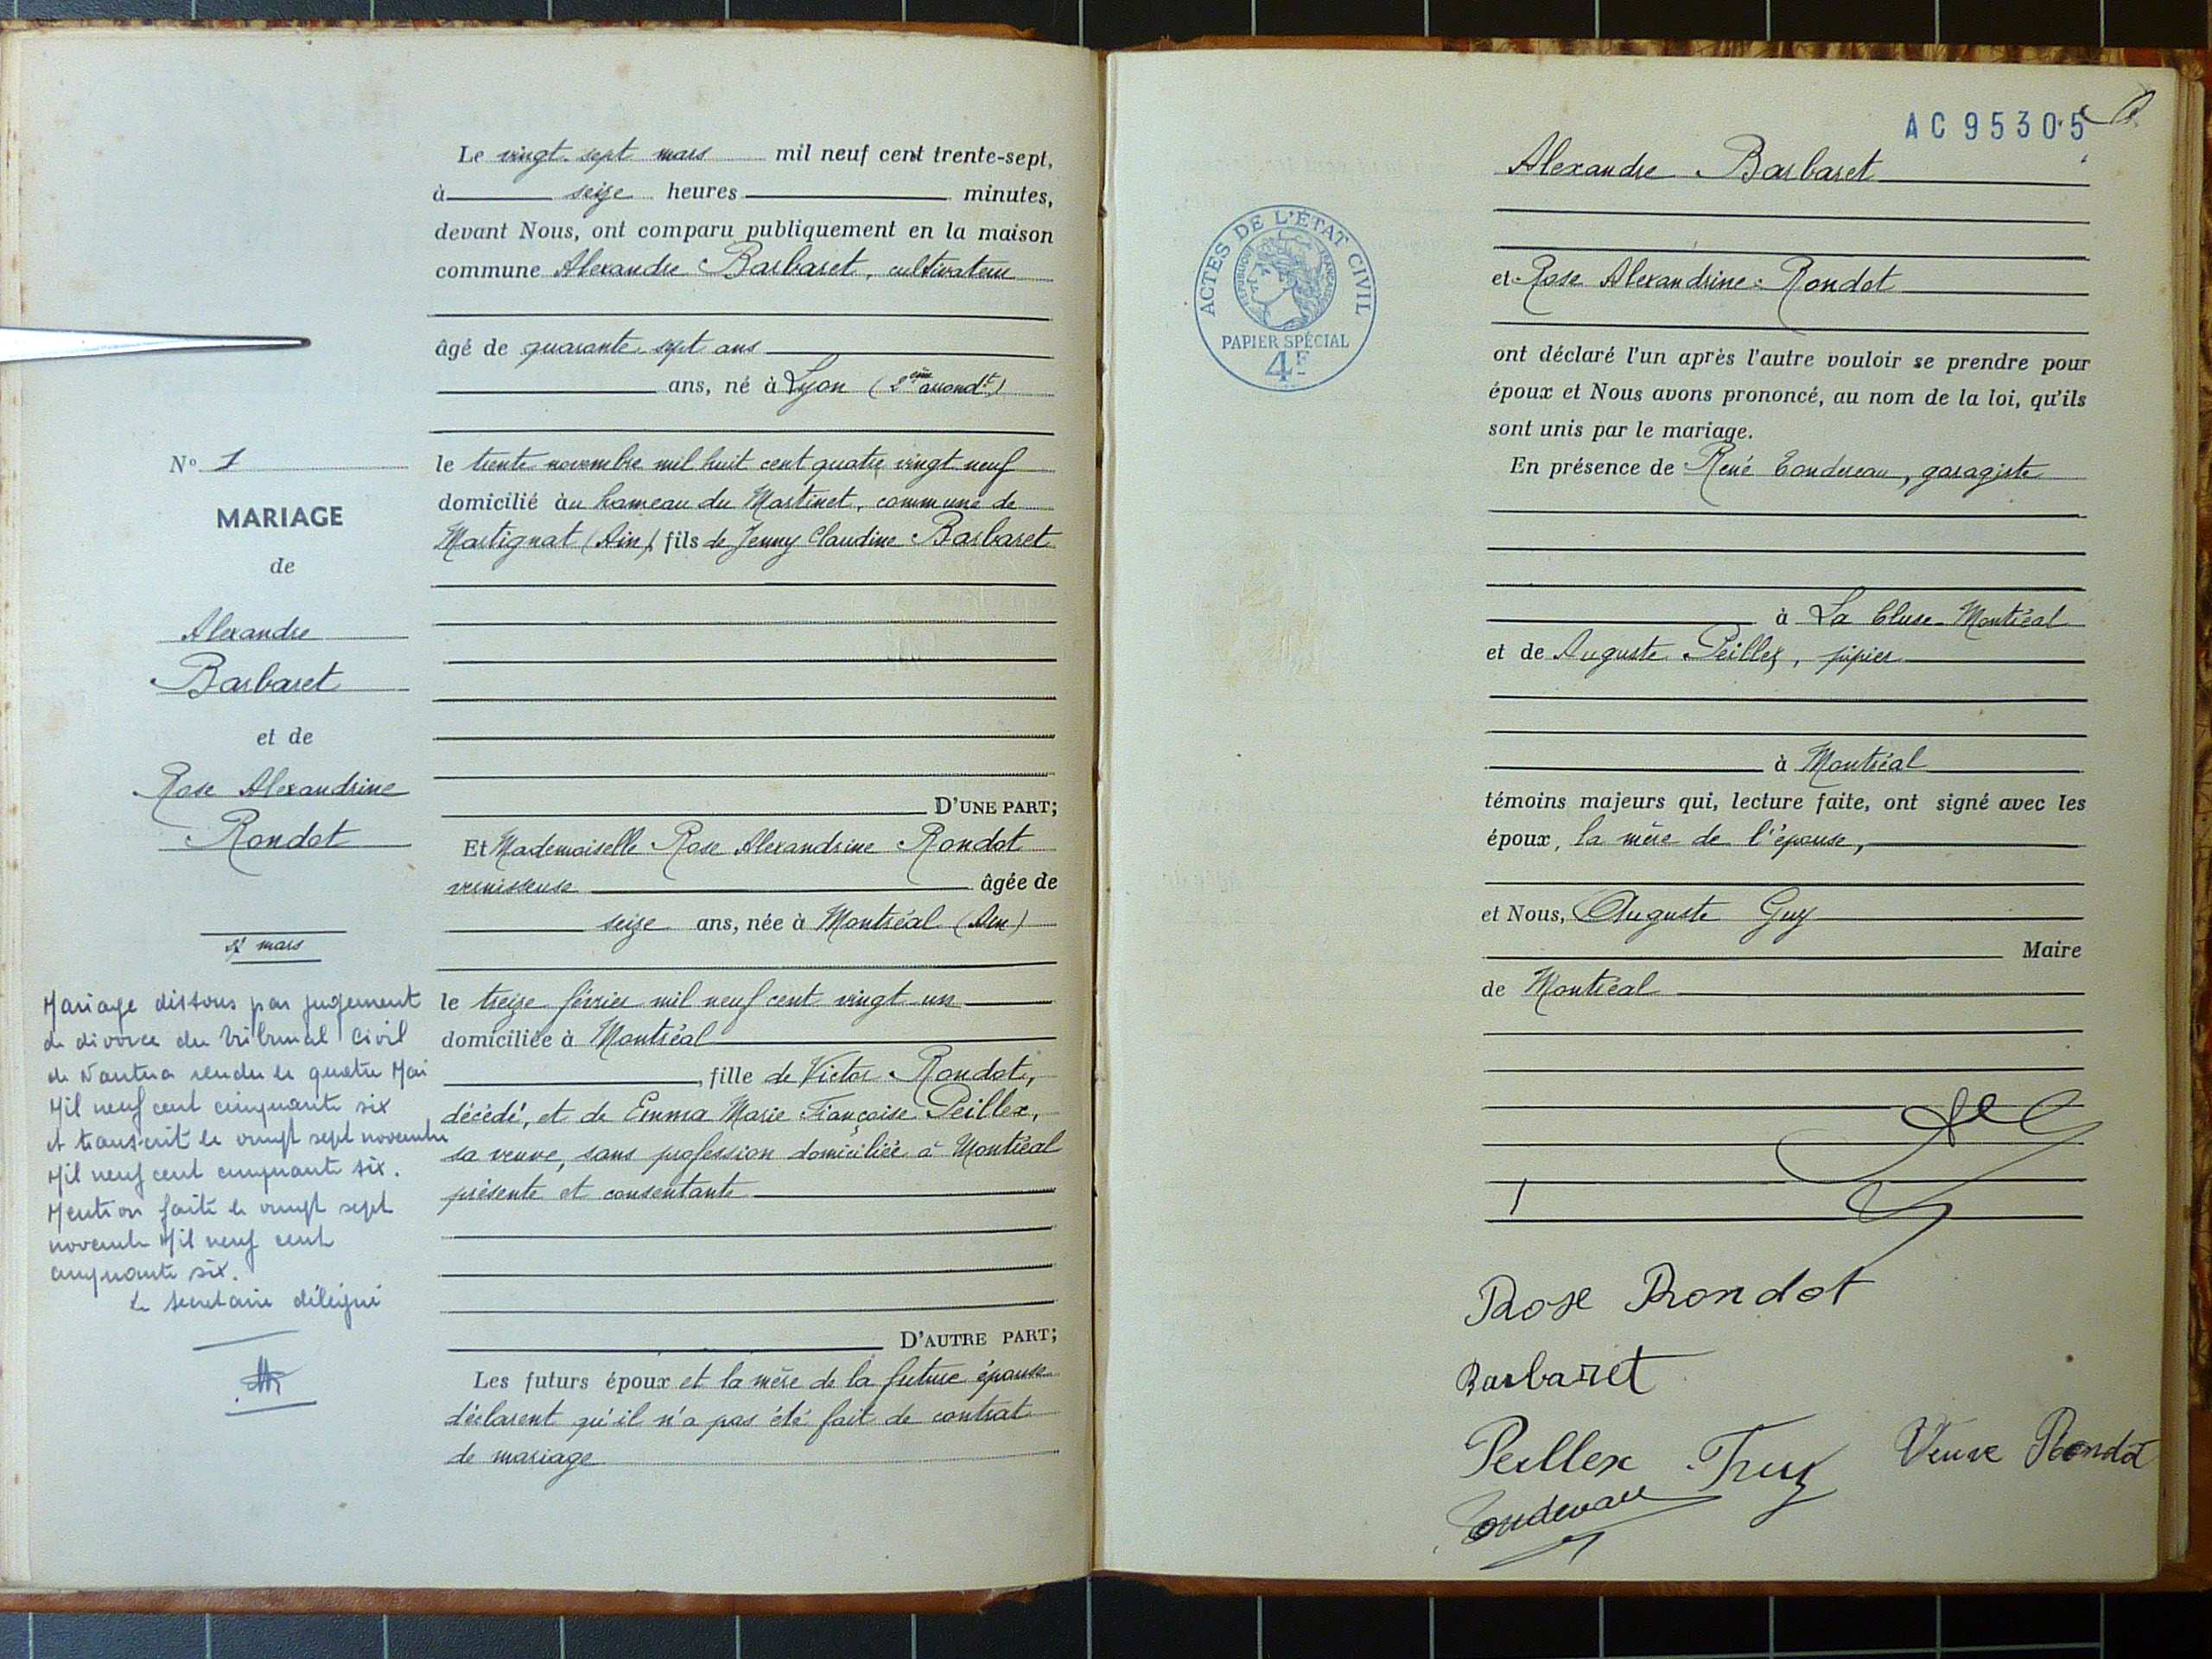 Le vingt-sept mars mil neuf cent trente-sept,
à seize heures minutes,
devant Nous, ont comparu publiquement en la maison
commune Alexandre Barbaret, cultivateur
âgé de quarante-sept ans
ans, né à Lyon (2ème arrondt)
le trente novembre mil huit cent quatre vingt neuf
domicilié au hameau du Martinet, commune de
Martignat (Ain) fils de Jenny Claudine Barbaret
D'UNE PART;
Et Mademoiselle Rose Alexandrine Rondot
vernisseuse âgée de
seize ans, née à Montréal (Ain)
le treize février mil neuf cent vingt un
domiciliée à Montréal
, fille de Victor Rondot,
décédé, et de Emma Marie Françoise Peillex,
sa veuve, sans profession domiciliée à Montréal
présente et consentante
D'AUTRE PART;
Les futurs époux et la mère de la future épouse
déclarent qu'il n'a pas été fait de contrat
de mariage
N° 1
MARIAGE
de
Alexandre
Barbaret
et de
Rose Alexandrine
Rondot
mars
Mariage dissous par jugement
de divorce du Tribunal Civil
de Nantua rendu le quatre Mai
Mil neuf cent cinquante six
et transcrit le vingt sept novembre
Mil neuf cent cinquante six.
Mention faite le vingt sept
novembre Mil neuf cent
cinquante six.
Le secrétaire délégué
AC 95305
Alexandre Barbaret
et Rose Alexandrine Rondot
ont déclaré l'un après l'autre vouloir se prendre pour
époux et Nous avons prononcé, au nom de la loi, qu'ils
sont unis par le mariage.
En présence de René Tondereau, garagiste
à La Cluse-Montréal
et de Auguste Peillex, pipier
à Montréal
témoins majeurs qui, lecture faite, ont signé avec les
époux, la mère de l'épouse,
et Nous, Auguste Guy
Maire
de Montréal
ACTES DE L'ÉTAT CIVIL
RÉPUBLIQUE FRANÇAISE
PAPIER SPÉCIAL
4F
Rose Rondot
Barbaret
Peillex Veuve Rondot